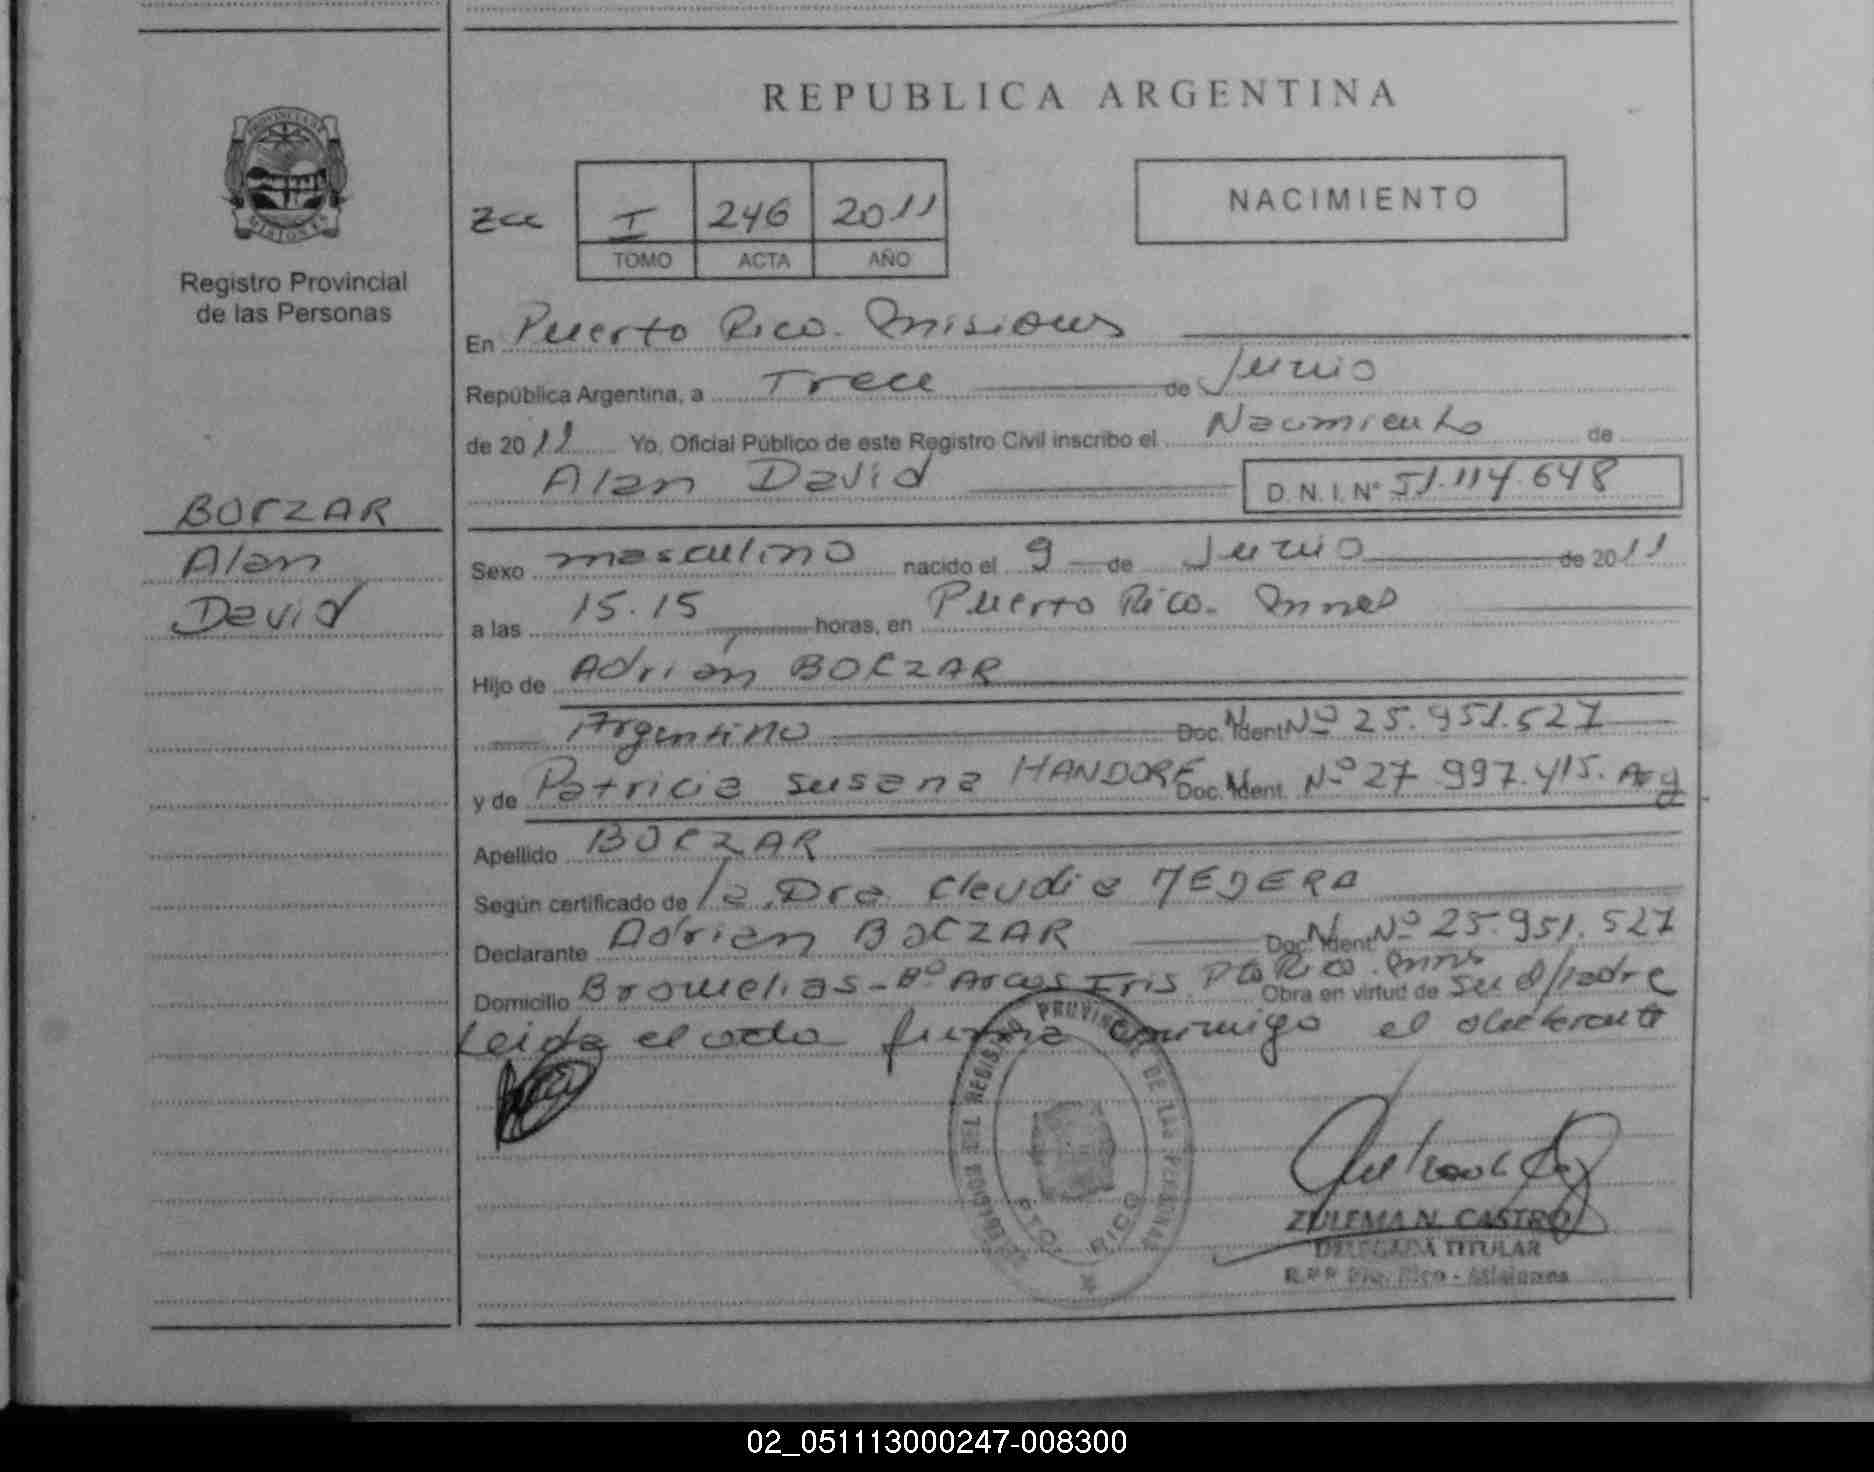 REPUBLICA ARGENTINA
PROVINCIA DE
MISIONES
Registro Provincial
de las Personas
Zcc
I 246 2011
TOMO ACTA AÑO
NACIMIENTO
En Puerto Rico. Misiones
República Argentina, a Trece de Junio
de 2011 Yo, Oficial Público de este Registro Civil inscribo el Nacimiento de
Alan David D.N.I.Nº 51.114.648
BOCZAR
Alan
David
Sexo masculino nacido el 9 de Junio de 2011
a las 15.15 horas, en Puerto Rico. Mnes
Hijo de Adrián BOCZAR
Argentino Doc. Ident. Nº 25.951.527
y de Patricia Susana HANDORF Doc. Ident. Nº 27.997.415. Arg
Apellido BOCZAR
Según certificado de la Dra. Claudia MEDERA
Declarante Adrian BOCZAR Doc. Ident. Nº 25.951.527
Domicilio Bromelias - Bº Arcos Iris Pto Rico. Mns Obra en virtud de su d/padre
Leida el acta firma conmigo el declarante
REGISTRO PROVINCIAL DE LAS PERSONAS
PTO. RICO
ZULEMA N. CASTRO
DELEGADA TITULAR
R.P.P. Pto. Rico - Misiones
02_051113000247-008300